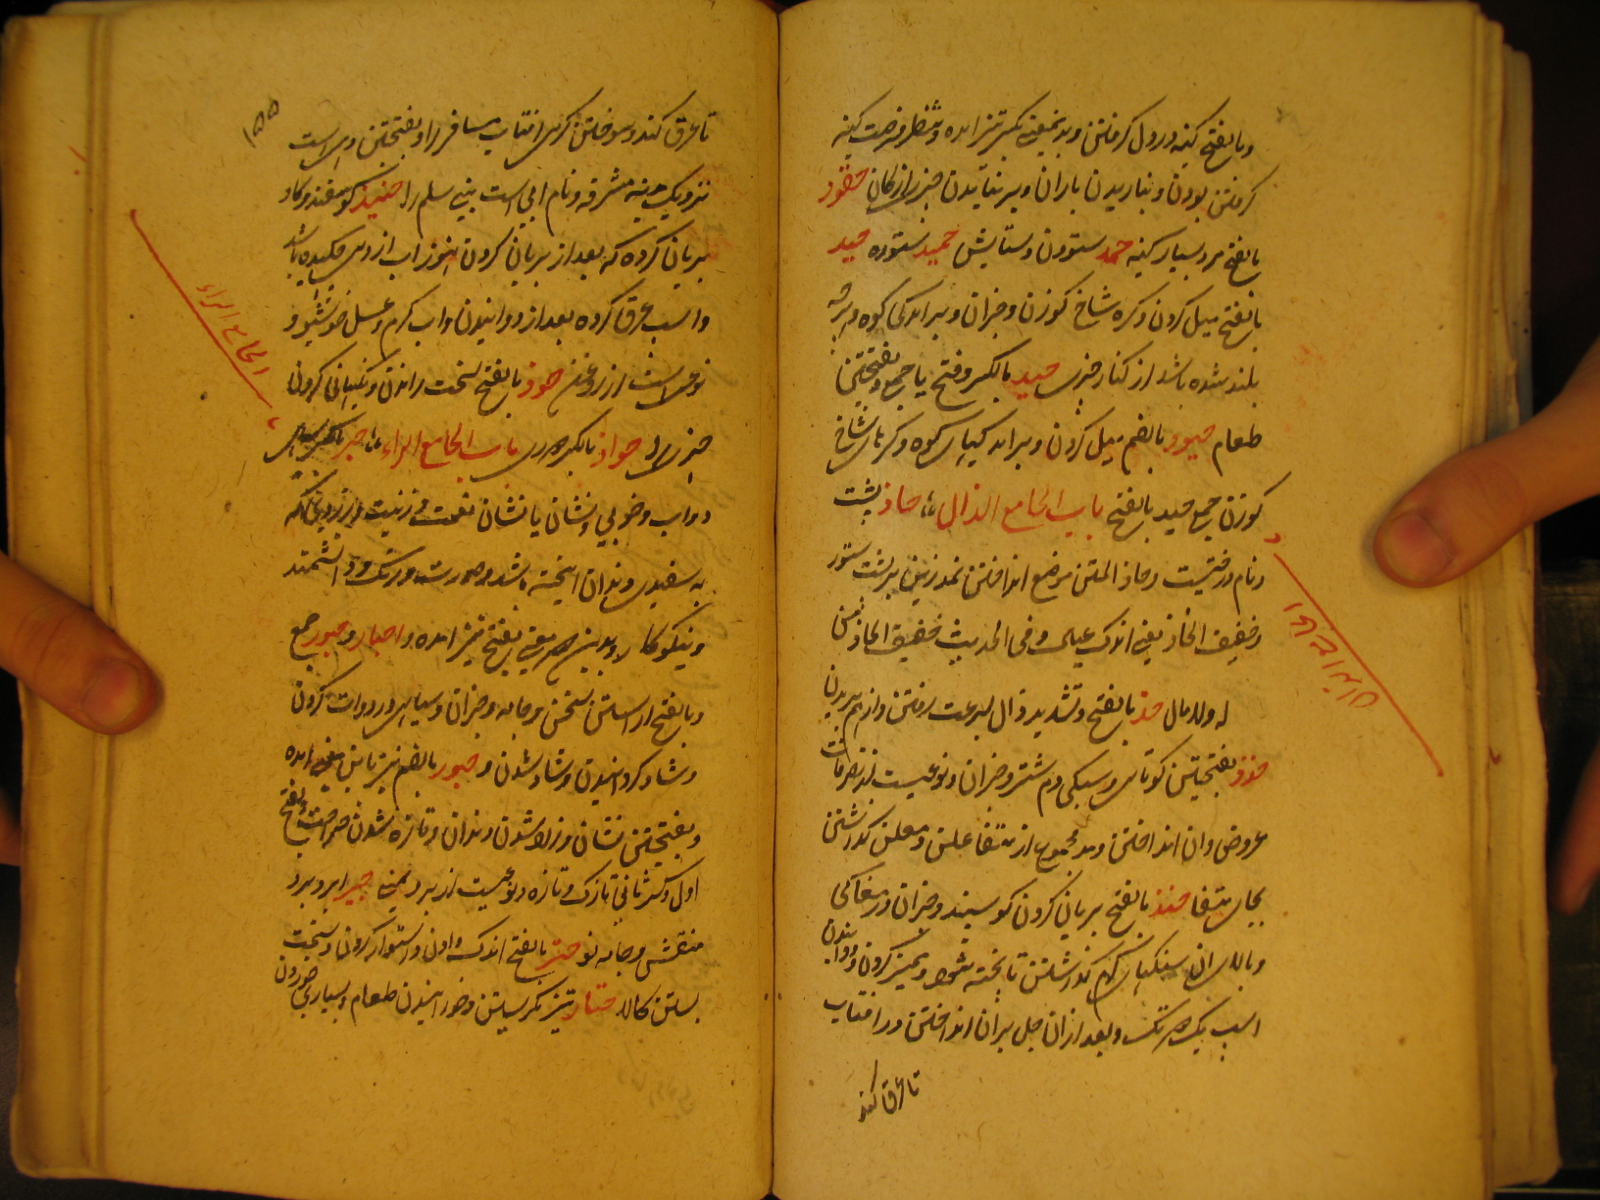 و بالفتح کینه در دل گرفتن و بدینمعنی بکسر نیز آمده و منتظر فرصت کینه
گرفتن بودن و نباریدن باران و بر نیامدن چیزی از کان حقود
بالفتح مرد بسیار کینه حمد ستودن و ستایش حمید ستوده حید
بالفتح میل کردن و گره شاخ گوزن و جز آن و برآمدگی کوه و هرچه
بلند شده باشد از کنار چیزی حید بالکسر و فتح یا جمع و بفتحتین
طعام حیود بالضم میل کردن و برآمدگیهای کوه و گرهای شاخ
گوزن جمع حید بالفتح باب الحا مع الذال حاذ پشت
و نام درختیست و حاذ المتن موضع انداختن نمد زین بر پشت ستور
و خفیف الحاذ یعنی اندک عیال و فی الحدیث خفیف الحاذ من
له ولد مال حذ بالفتح و تشدید ذال بسرعت رفتن و از هم بریدن
حذذ بفتحتین کوتاهی و سبکی دم شتر و جز آن و نوعیست از تصرفات
عروض و آن انداختن وتد مجموع از متفاعلن و فعلن گذاشتن
بجای متفا حنذ بالفتح بریان کردن گوسپند و جز آن در مغاکی
و بالای آن سنگهای گرم گذاشتن تا پخته شود و تیز کردن و دوانیدن
اسپ یک دو تک و بعد از آن جل بر آن انداختن در آفتاب
تا عرق کند
الحا مع الذال
۱۵۵
تا عرق کند و سوختن گرمی آفتاب مسافر را و بفتحتین دهی است
نزدیک مدینه مشرفه و نام آبی است بنی سلیم را حنیذ گوسفند و گاو
بریان کرده که بعد از بریان کردن هنوز آب از وی چکیده باشد
و اسپ عرق کرده بعد از دوانیدن و آب گرم و غسل خوشبو و
نوعی است از روغن حوذ بالفتح سخت راندن و نگهبانی کردن
چیزی را حواذ بالکسر دوری باب الحا مع الراء حبر بالکسر سیاهی
دوات و خوبی و نشان یا نشان نعمت و زینت و زردی که
به سفیدی دندان آمیخته باشد و صورت و رنگ و دانشمند
و نیکوکار و بدین دو معنی بفتح نیز آمده و احبار و حبور جمع
و بالفتح آراستن سخن و جامه و جز آن و سیاهی در دوات کردن
و شاد گردانیدن و شاد شدن و حبور بالضم نیز باین معنی آمده
و بفتحتین نشان و زرد شدن دندان و تازه شدن جراحت و بفتح
اول و کسر ثانی نازک و تازه و نوعیست از برد یمنی حبیر ابر و برد
منقش و جامه نو حتر بالفتح اندک دادن و استوار کردن و سخت
بستن کالا حتار تیز نگریستن و خورانیدن طعام و بسیار خوردن
الحا مع الراء